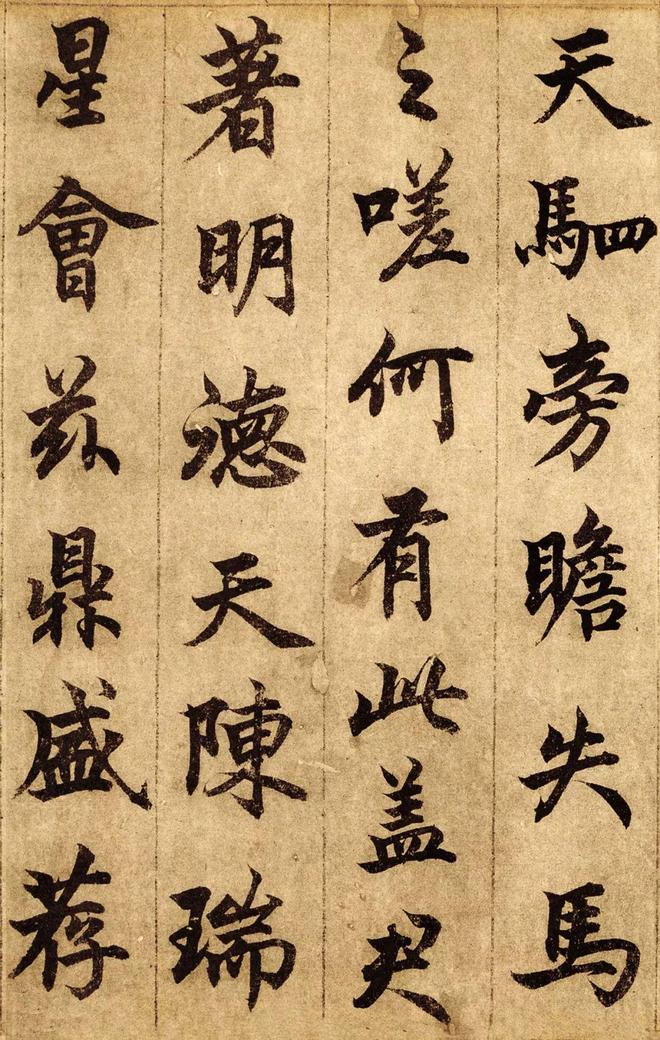 天駟旁瞻失馬
之嗟何有此盖
著明德天陳瑞
星會茲鼎盛荐